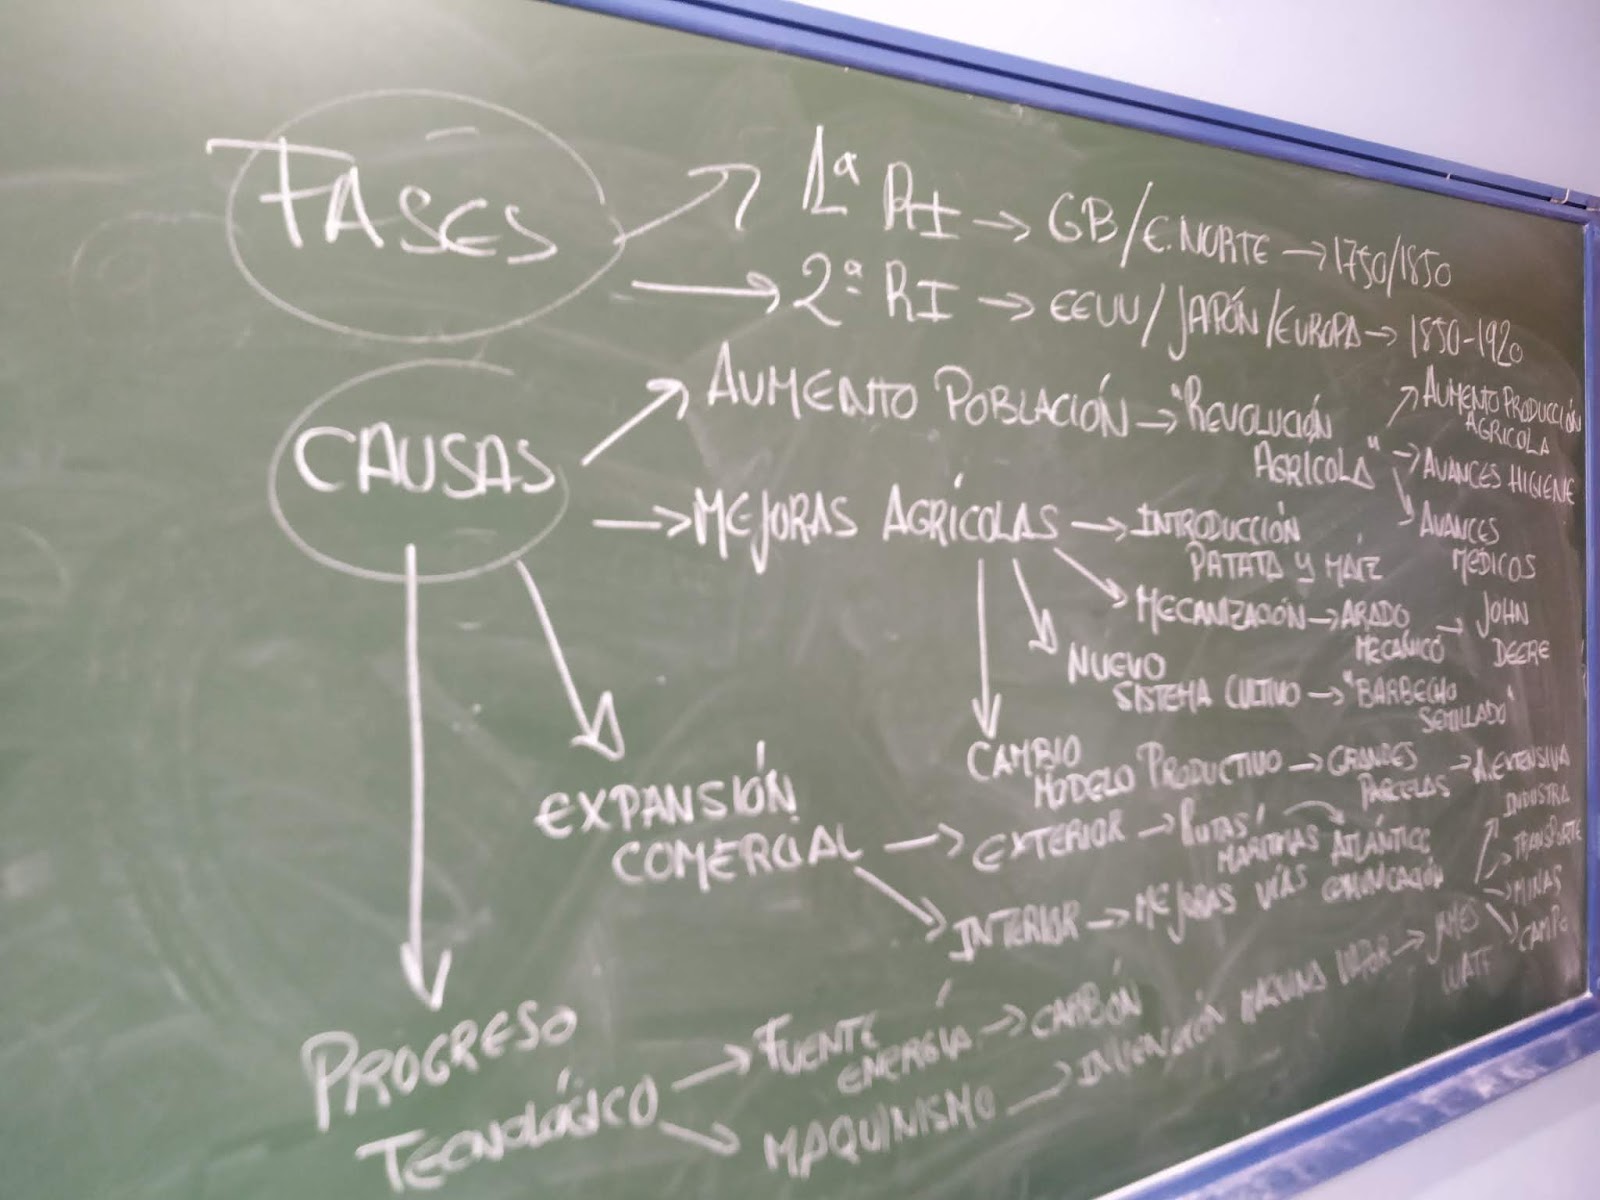 FASES
1ª RI → GB/E.NORTE → 1750/1850
2ª RI → EEUU/JAPÓN/EUROPA → 1850-1920
CAUSAS
AUMENTO POBLACIÓN → "REVOLUCIÓN
AGRÍCOLA"
→ AUMENTO PRODUCCIÓN
AGRICOLA
→ AVANCES HIGIENE
→ AVANCES
MEDICOS
→ MEJORAS AGRÍCOLAS → INTRODUCCIÓN
PATATA Y MAÍZ
MECANIZACIÓN → ARADO
MECÁNICO → JOHN
DEERE
NUEVO
SISTEMA CULTIVO → "BARBECHO
SEMILLADO"
CAMBIO
MODELO PRODUCTIVO → GRANDES
PARCELAS → A.EXTENSIVA
EXPANSIÓN
COMERCIAL → EXTERIOR → RUTAS
MARITIMAS ATLÁNTICO
INTERIOR → MEJORAS VÍAS COMUNICACIÓN
PROGRESO
TECNOLÓGICO → FUENTE
ENERGÍA → CARBÓN
MAQUINISMO → INVENCIÓN MAQUINA VAPOR → JAMES
WATT
INDUSTRA
TRANSPORTE
MINAS
CAMPO